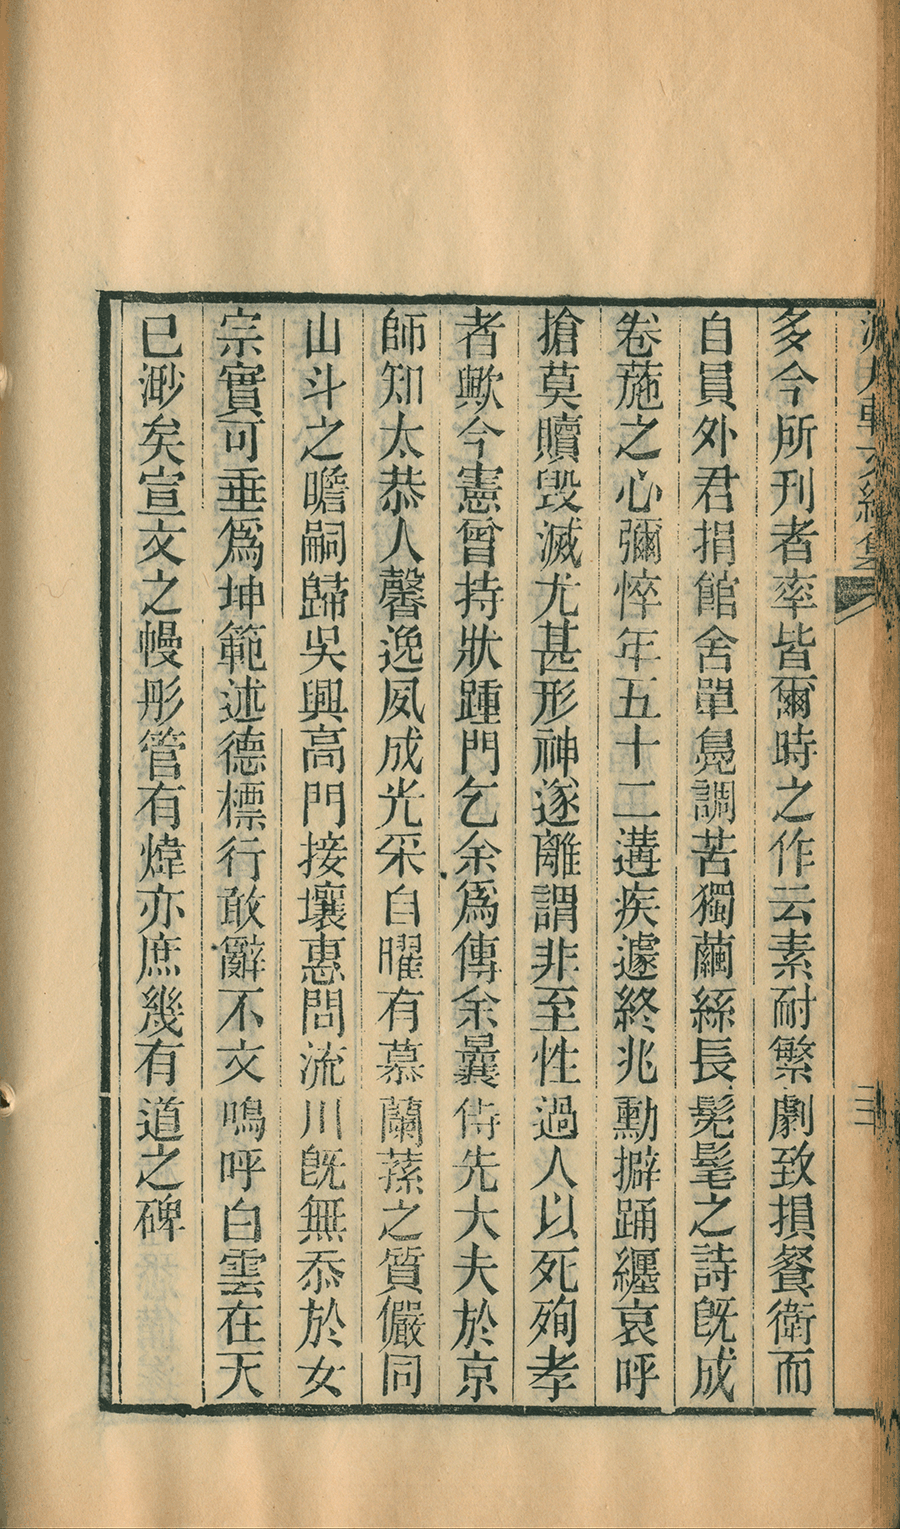 多今所刊者率皆爾時之作云素耐繁劇致損餐衛而
自員外君捐館舍單鳧調苦獨繭絲長髧髦之詩旣成
卷葹之心彌悴年五十二遘疾遽終兆勳擗踊纏哀呼
搶莫贖毀滅尤甚形神遂離謂非至性過人以死殉孝
者歟今憲曾持狀踵門乞余爲傳余曩侍先大夫於京
師知太恭人馨逸夙成光采自曜有慕蘭蓀之質儼同
山斗之瞻嗣歸吳興高門接壤惠問流川旣無忝於女
宗實可垂爲坤範述德標行敢辭不文嗚呼白雲在天
已渺矣宣文之幔彤管有煒亦庶幾有道之碑